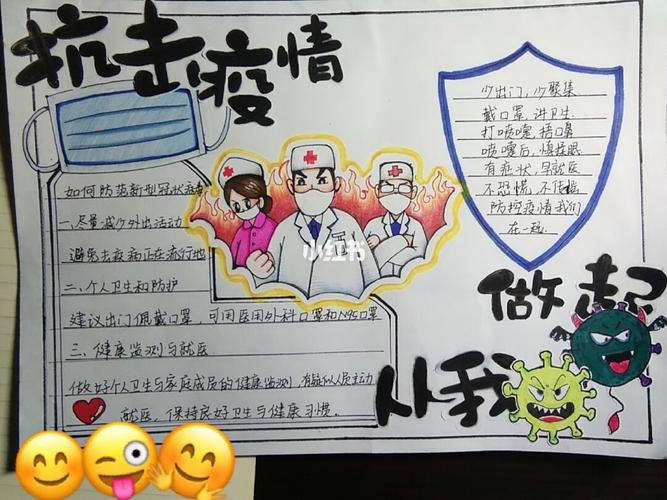 抗击疫情
如何防范新型冠状病毒
一、尽量减少外出活动
避免去疾病正在流行地
二、个人卫生和防护
建议出门佩戴口罩，可用医用外科口罩和N95口罩
三、健康监测与就医
做好个人卫生与家庭成员的健康监测，有疑似人员主动
就医、保持良好卫生与健康习惯。
小红书
少出门，少聚集
戴口罩，讲卫生
打喷嚏，捂口鼻
喷嚏后，慎揉眼
有症状，早就医
不恐慌，不传谣
防控疫情我们
在一起
从我
做起